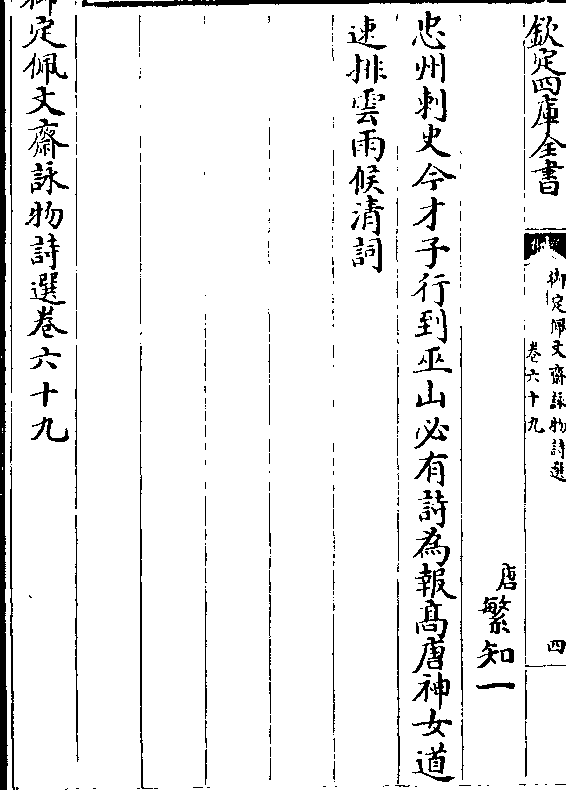 欽定四庫全書
御定佩文齋詠物詩選
卷六十九
四
唐 繁知一
忠州刺史今才子行到巫山必有詩為報髙唐神女道
速排雲雨候清詞
御定佩文齋詠物詩選卷六十九